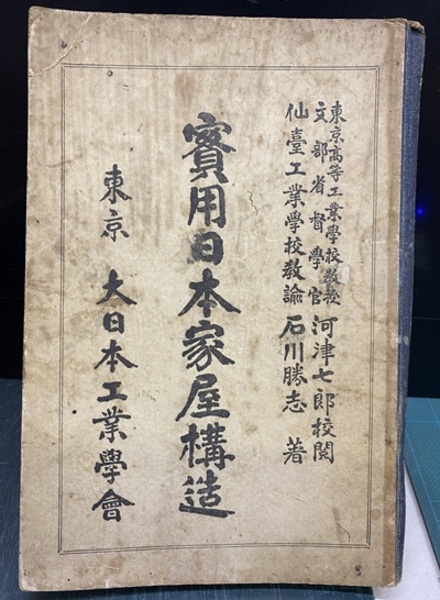 東京高等工業學校教授
文部省督學官 河津七郎校閲
仙臺工業學校教諭 石川勝志 著
實用日本家屋構造
東京 大日本工業學會